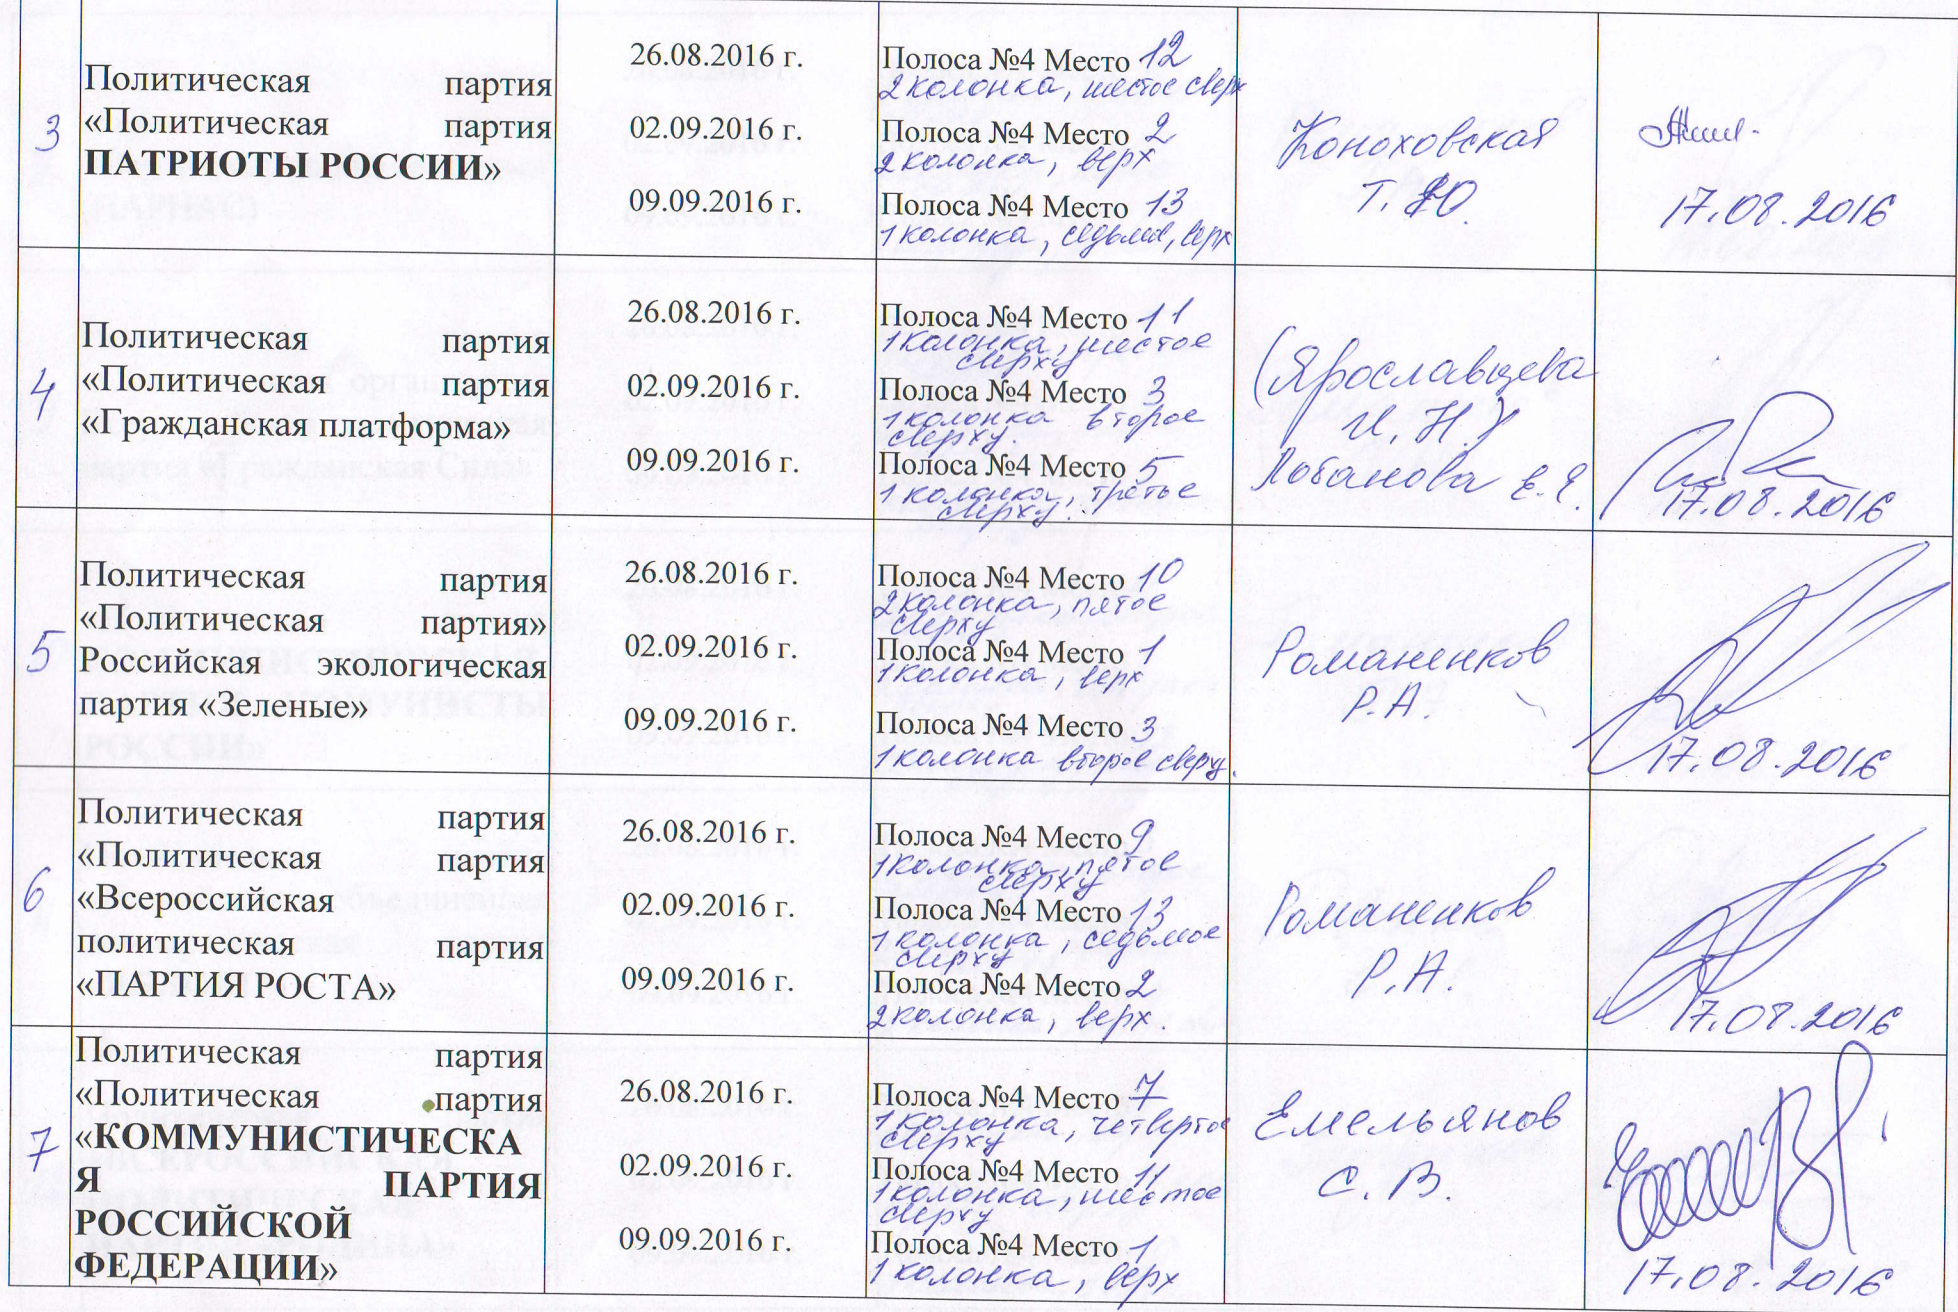 3
Политическая партия
«Политическая партия
ПАТРИОТЫ РОССИИ»
26.08.2016 г.
02.09.2016 г.
09.09.2016 г.
Полоса №4 Место 12
2 колонка, шестое сверх
Полоса №4 Место 2
2 колонка, верх
Полоса №4 Место 13
1 колонка, седьмое, верх
Коноховская
Т.Ю.
17.08.2016
4
Политическая партия
«Политическая партия
«Гражданская платформа»
26.08.2016 г.
02.09.2016 г.
09.09.2016 г.
Полоса №4 Место 11
1 колонка, шестое
сверху
Полоса №4 Место 3
1 колонка второе
сверху.
Полоса №4 Место 5
1 колонка, третье
сверху.
(Ярославцева
И.Н.)
Лобанова Е.Е.
17.08.2016
5
Политическая партия
«Политическая партия»
Российская экологическая
партия «Зеленые»
26.08.2016 г.
02.09.2016 г.
09.09.2016 г.
Полоса №4 Место 10
2 колонка, пятое
сверху
Полоса №4 Место 1
1 колонка, верх
Полоса №4 Место 3
1 колонка второе сверху.
Романенков
Р.А.
17.08.2016
6
Политическая партия
«Политическая партия
«Всероссийская
политическая партия
«ПАРТИЯ РОСТА»
26.08.2016 г.
02.09.2016 г.
09.09.2016 г.
Полоса №4 Место 9
1 колонка, пятое
сверху
Полоса №4 Место 13
1 колонка, седьмое
сверху
Полоса №4 Место 2
2 колонка, верх.
Романенков
Р.А.
17.08.2016
7
Политическая партия
«Политическая партия
«КОММУНИСТИЧЕСКА
Я ПАРТИЯ
РОССИЙСКОЙ
ФЕДЕРАЦИИ»
26.08.2016 г.
02.09.2016 г.
09.09.2016 г.
Полоса №4 Место 7
1 колонка, четвертое
сверху
Полоса №4 Место 11
1 колонка, шестое
сверху
Полоса №4 Место 1
1 колонка, верх
Емельянов
С.В.
17.08.2016